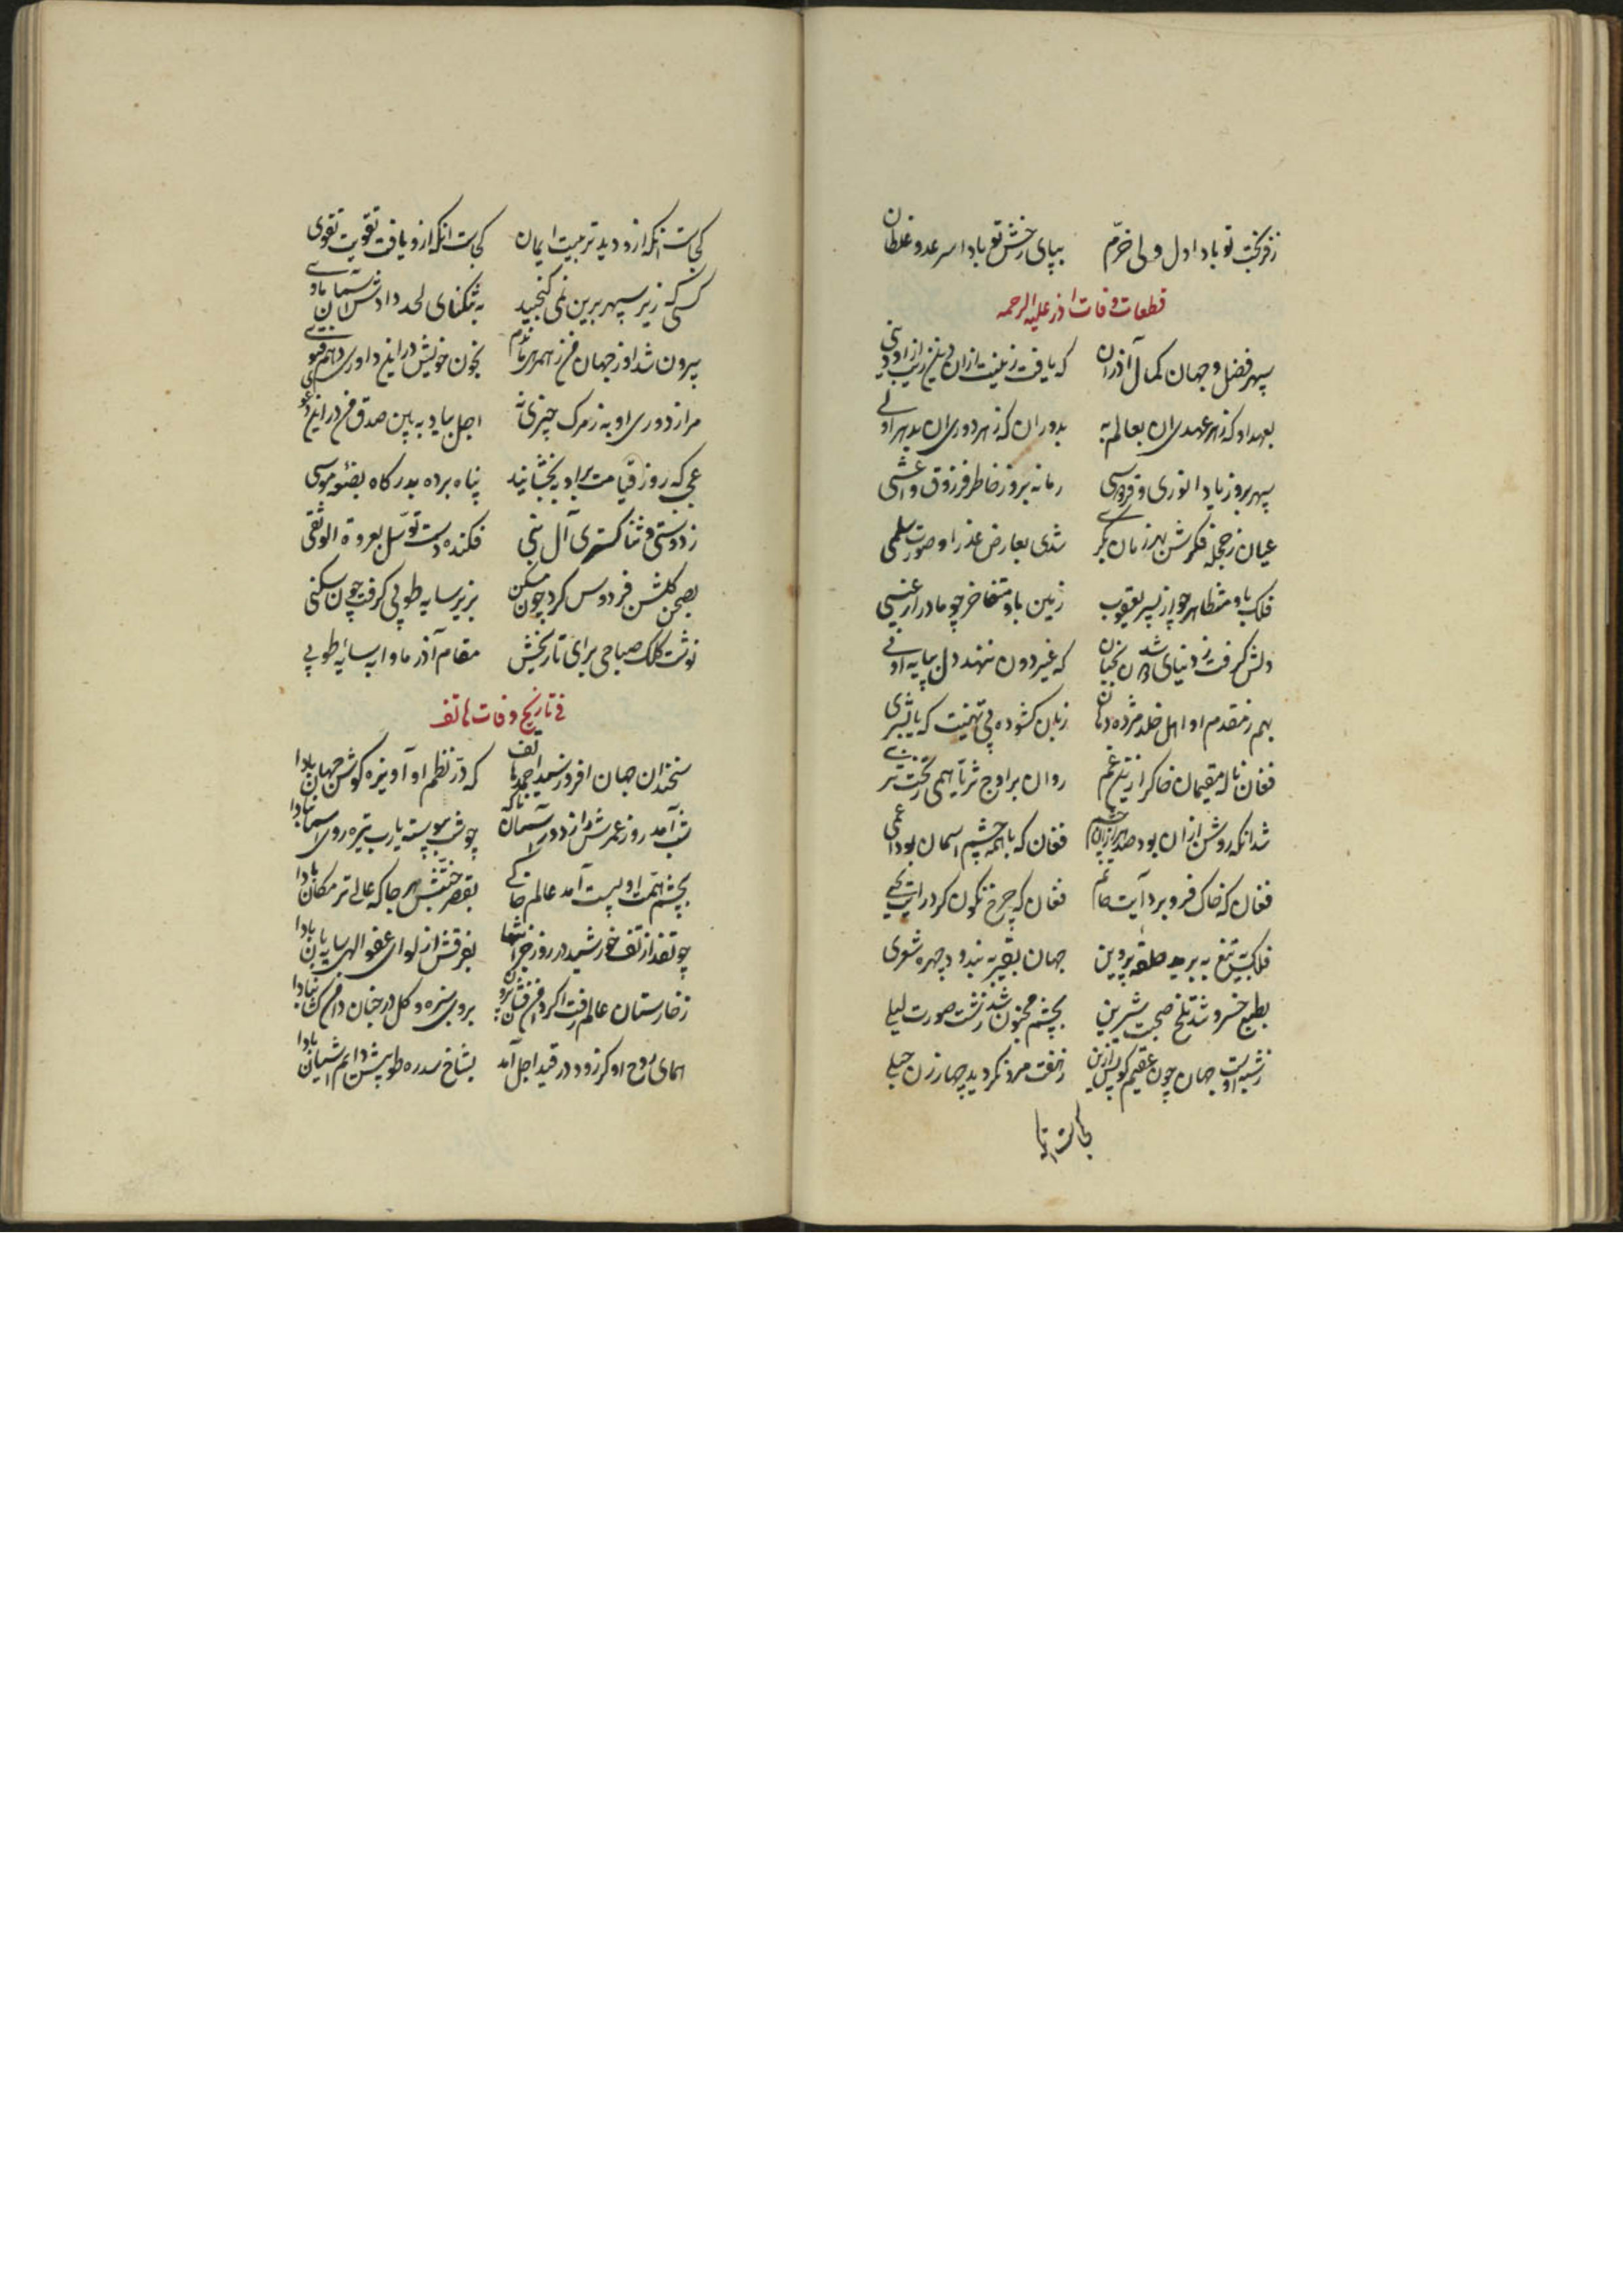 ز فر بخت تو بادا دل ولی خرم بپای رخش تو بادا سر عدو غلطان
قطعات وفات اذر علیه الرحمه
سپهر فضل و جهان کمال آذر ان که یافت زینت ازان دین و زیب ازو دنیی
بعهد او که ز هر عهدی ان بعالم به بدوران که ز هر دوری ان بدهر اولی
سپهر بروز یاد انوری و فردوسی زمانه برد ز خاطر فرزدق و اعشی
عیان ز حجله فکرش بهر زمان بکری شدی بعارض عذرا و صورت سلمی
فلک باو متظاهر چو از پسر یعقوب زمین باو متفاخر چو مادر از عیسی
دلش گرفت ز دنیای دون شد بجنان که غیر دون ننهد دل بپایه ادنی
بهم ز مقدم او اهل خلد مژده دهان زبان کشوده پی تهنیت که یا بشری
فغان ناله مقیمان خاک را ز غم روان بر اوج ثریا همی ز تحت ثری
شد انکه روشن ازان بود صد هزاران چشم فغان که با همه چشم اسمان بود اعمی
فغان که خاک فرو برد آیت حاتم فغان که چرخ نگون کرد رایت یحیی
فلک بتیغ به برید حلقه پروین جهان بقیر بیندود چهره شعری
بطبع خسرو شد تلخ صحبت شیرین بچشم مجنون شد زشت صورت لیلی
ز شبه اوست جهان چون عقیم کو پس ازین ز جفت مرد نگردید چهار زن حبلی
کجاست انکه
کجاست انکه ازو دید تربیت ایمان کجاست انکه ازو یافت تقویت تقوی
کسی که زیر سپهر برین نمی گنجید به تنگنای لحد دادش آسمان ماوی
بیرون شد او ز جهان من ز همرهی ماندم بخون خویش درین داوری دهم فتوی
مرا ز دوری او به ز مرک چیزی نه اجل بیاد به بین صدق من درین دعوی
عجی که روز قیامت براو ببخشایند پناه برده بدرگاه بضعه موسی
ز دوستی و ثنا گستری آل نبی فکنده دست توسل بعروة الوثقی
بصحن گلشن فردوس کرد چون مسکن بزیر سایه طوبی گرفت چون سکنی
نوشت کلک صباحی برای تاریخش مقام آذر ماوا به سایه طوبی
فی تاریخ وفات هاتف
سخندان جهان افروز سید احمد هاتف که در نظم او آویزه گوش جهان بادا
شب آمد روز عمرش از دور آسمان ناکه چو شب پیوسته یارب تیره روی اسمان بادا
بچشم همت او پست آمد عالم خاکی بقصر جنتش هر جا که عالی تر مکان بادا
چو تفد از تف خورشید در روز جزا تنها بفرقش از لوای عفو الهی سایه بان بادا
ز خارستان عالم رفت اکر دامن فشان بیرون بروی سبزه و گل در جنان دامن کشان بادا
همای روح او کر زود در قید اجل آمد بشاخ سدره طوبیش دایم اشیان بادا